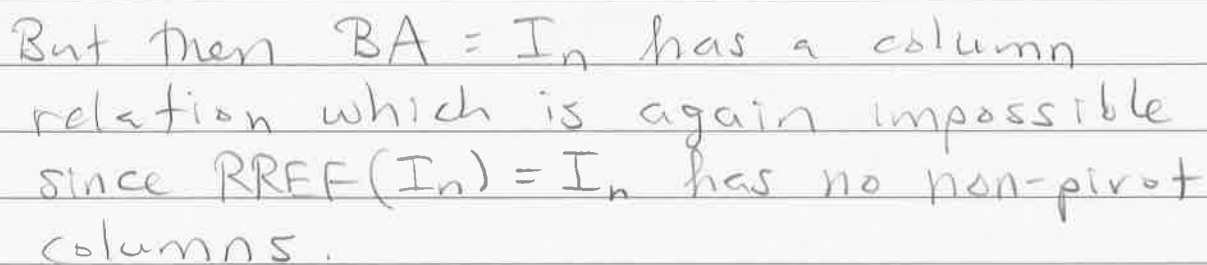 But then BA = Iₙ has a column
relation which is again impossible
since RREF(Iₙ) = Iₙ has no non-pivot
columns.